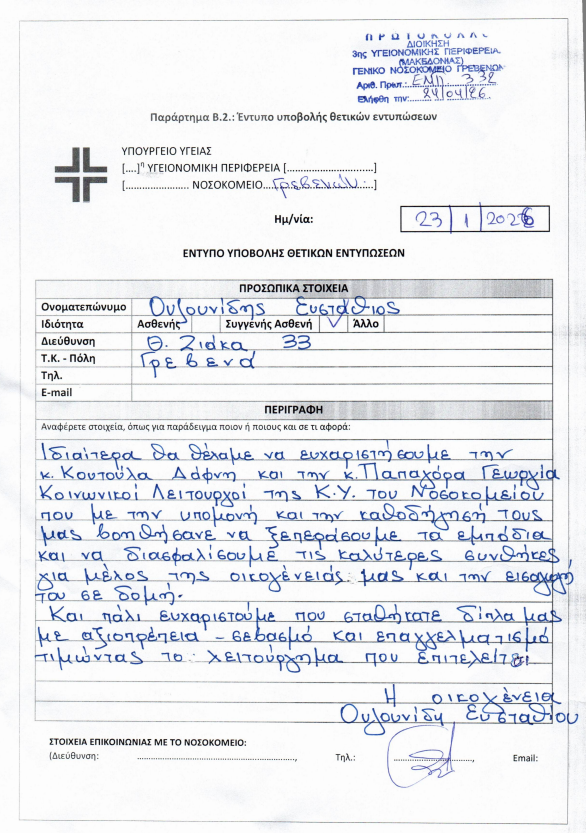 ΠΡΩΤΟΚΟΛΛΟ
ΔΙΟΙΚΗΣΗ
3ης ΥΓΕΙΟΝΟΜΙΚΗΣ ΠΕΡΙΦΕΡΕΙΑΣ
(ΜΑΚΕΔΟΝΙΑΣ)
ΓΕΝΙΚΟ ΝΟΣΟΚΟΜΕΙΟ ΓΡΕΒΕΝΩΝ
Αριθ. Πρωτ.: ΕΜΠ 332
Ελήφθη την: 24/04/26
Παράρτημα Β.2.: Έντυπο υποβολής θετικών εντυπώσεων
ΥΠΟΥΡΓΕΙΟ ΥΓΕΙΑΣ
[....]η ΥΓΕΙΟΝΟΜΙΚΗ ΠΕΡΙΦΕΡΕΙΑ [........................]
[...................... ΝΟΣΟΚΟΜΕΙΟ....Γρεβενών....]
Ημ/νία: 23 | 1 | 2026
ΕΝΤΥΠΟ ΥΠΟΒΟΛΗΣ ΘΕΤΙΚΩΝ ΕΝΤΥΠΩΣΕΩΝ
ΠΡΟΣΩΠΙΚΑ ΣΤΟΙΧΕΙΑ
Ονοματεπώνυμο Ουζουνίδης Ευστάθιος
Ιδιότητα Ασθενής Συγγενής Ασθενή ✓ Άλλο
Διεύθυνση Θ. Ζιάκα 33
Τ.Κ. - Πόλη Γρεβενά
Τηλ.
E-mail
ΠΕΡΙΓΡΑΦΗ
Αναφέρετε στοιχεία, όπως για παράδειγμα ποιον ή ποιους και σε τι αφορά:
Ιδιαίτερα θα θέλαμε να ευχαριστήσουμε την
κ. Κουτούλα Δάφνη και την κ. Παπαχόρα Γεωργία
Κοινωνικοί Λειτουργοί της Κ.Υ. του Νοσοκομείου
που με την υπομονή και την καθοδήγησή τους
μας βοηθήσανε να ξεπεράσουμε τα εμπόδια
και να διασφαλίσουμε τις καλύτερες συνθήκες
για μέλος της οικογένειάς μας και την εισαγωγή
του σε δομή.
Και πάλι ευχαριστούμε που σταθήκατε δίπλα μας
με αξιοπρέπεια - σεβασμό και επαγγελματισμό
τιμώντας το λειτούργημα που επιτελείτε.
Η οικογένεια
Ουζουνίδη Ευσταθίου
ΣΤΟΙΧΕΙΑ ΕΠΙΚΟΙΝΩΝΙΑΣ ΜΕ ΤΟ ΝΟΣΟΚΟΜΕΙΟ:
(Διεύθυνση: .........................................., Τηλ.: ........................, Email: